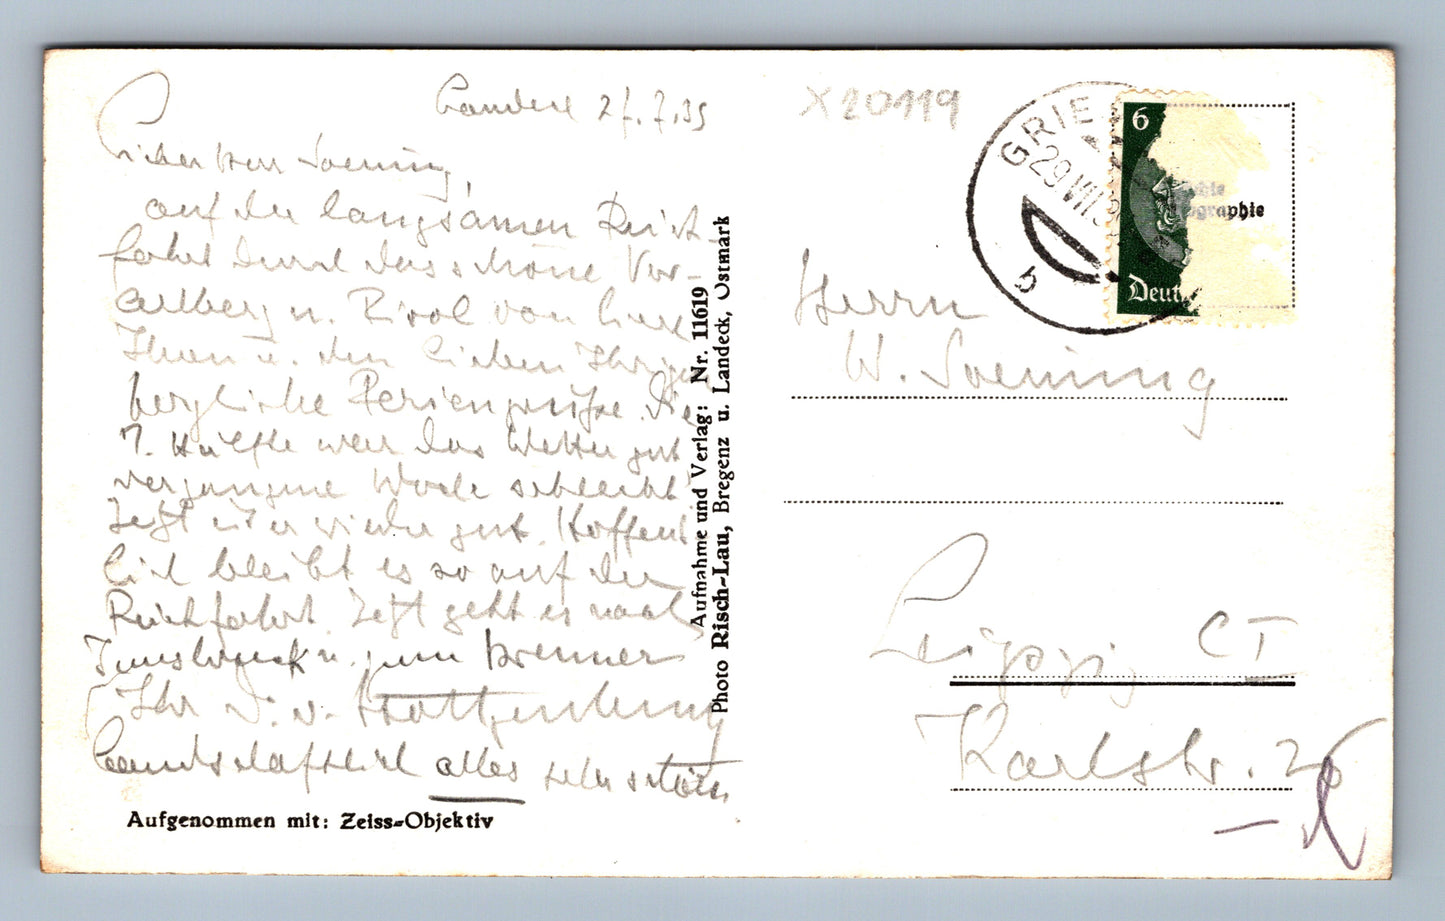 Landeck 27.7.39
X20119
Lieber Herr Soenning,
auf der langsamen Rück-
fahrt durch das schöne Vor-
arlberg u. Tirol von hier
Ihnen u. den lieben Ihrigen
herzliche Feriengrüße. Die
1. Hälfte war das Wetter gut
vergangene Woche schlecht
Jetzt ist es wieder gut. Hoffent
lich bleibt es so auf der
Rückfahrt. Jetzt geht es nach
Innsbruck u. zum Brenner
Ihr
Landschaftlich alles sehr schön
Aufgenommen mit: Zeiss-Objektiv
Aufnahme und Verlag: Nr. 11619
Photo Risch-Lau, Bregenz u. Landeck, Ostmark
GRIE
29.VII.3
b
6
Deut
graphie
Herrn
W. Soenning
Leipzig C I
Karlstr. 20